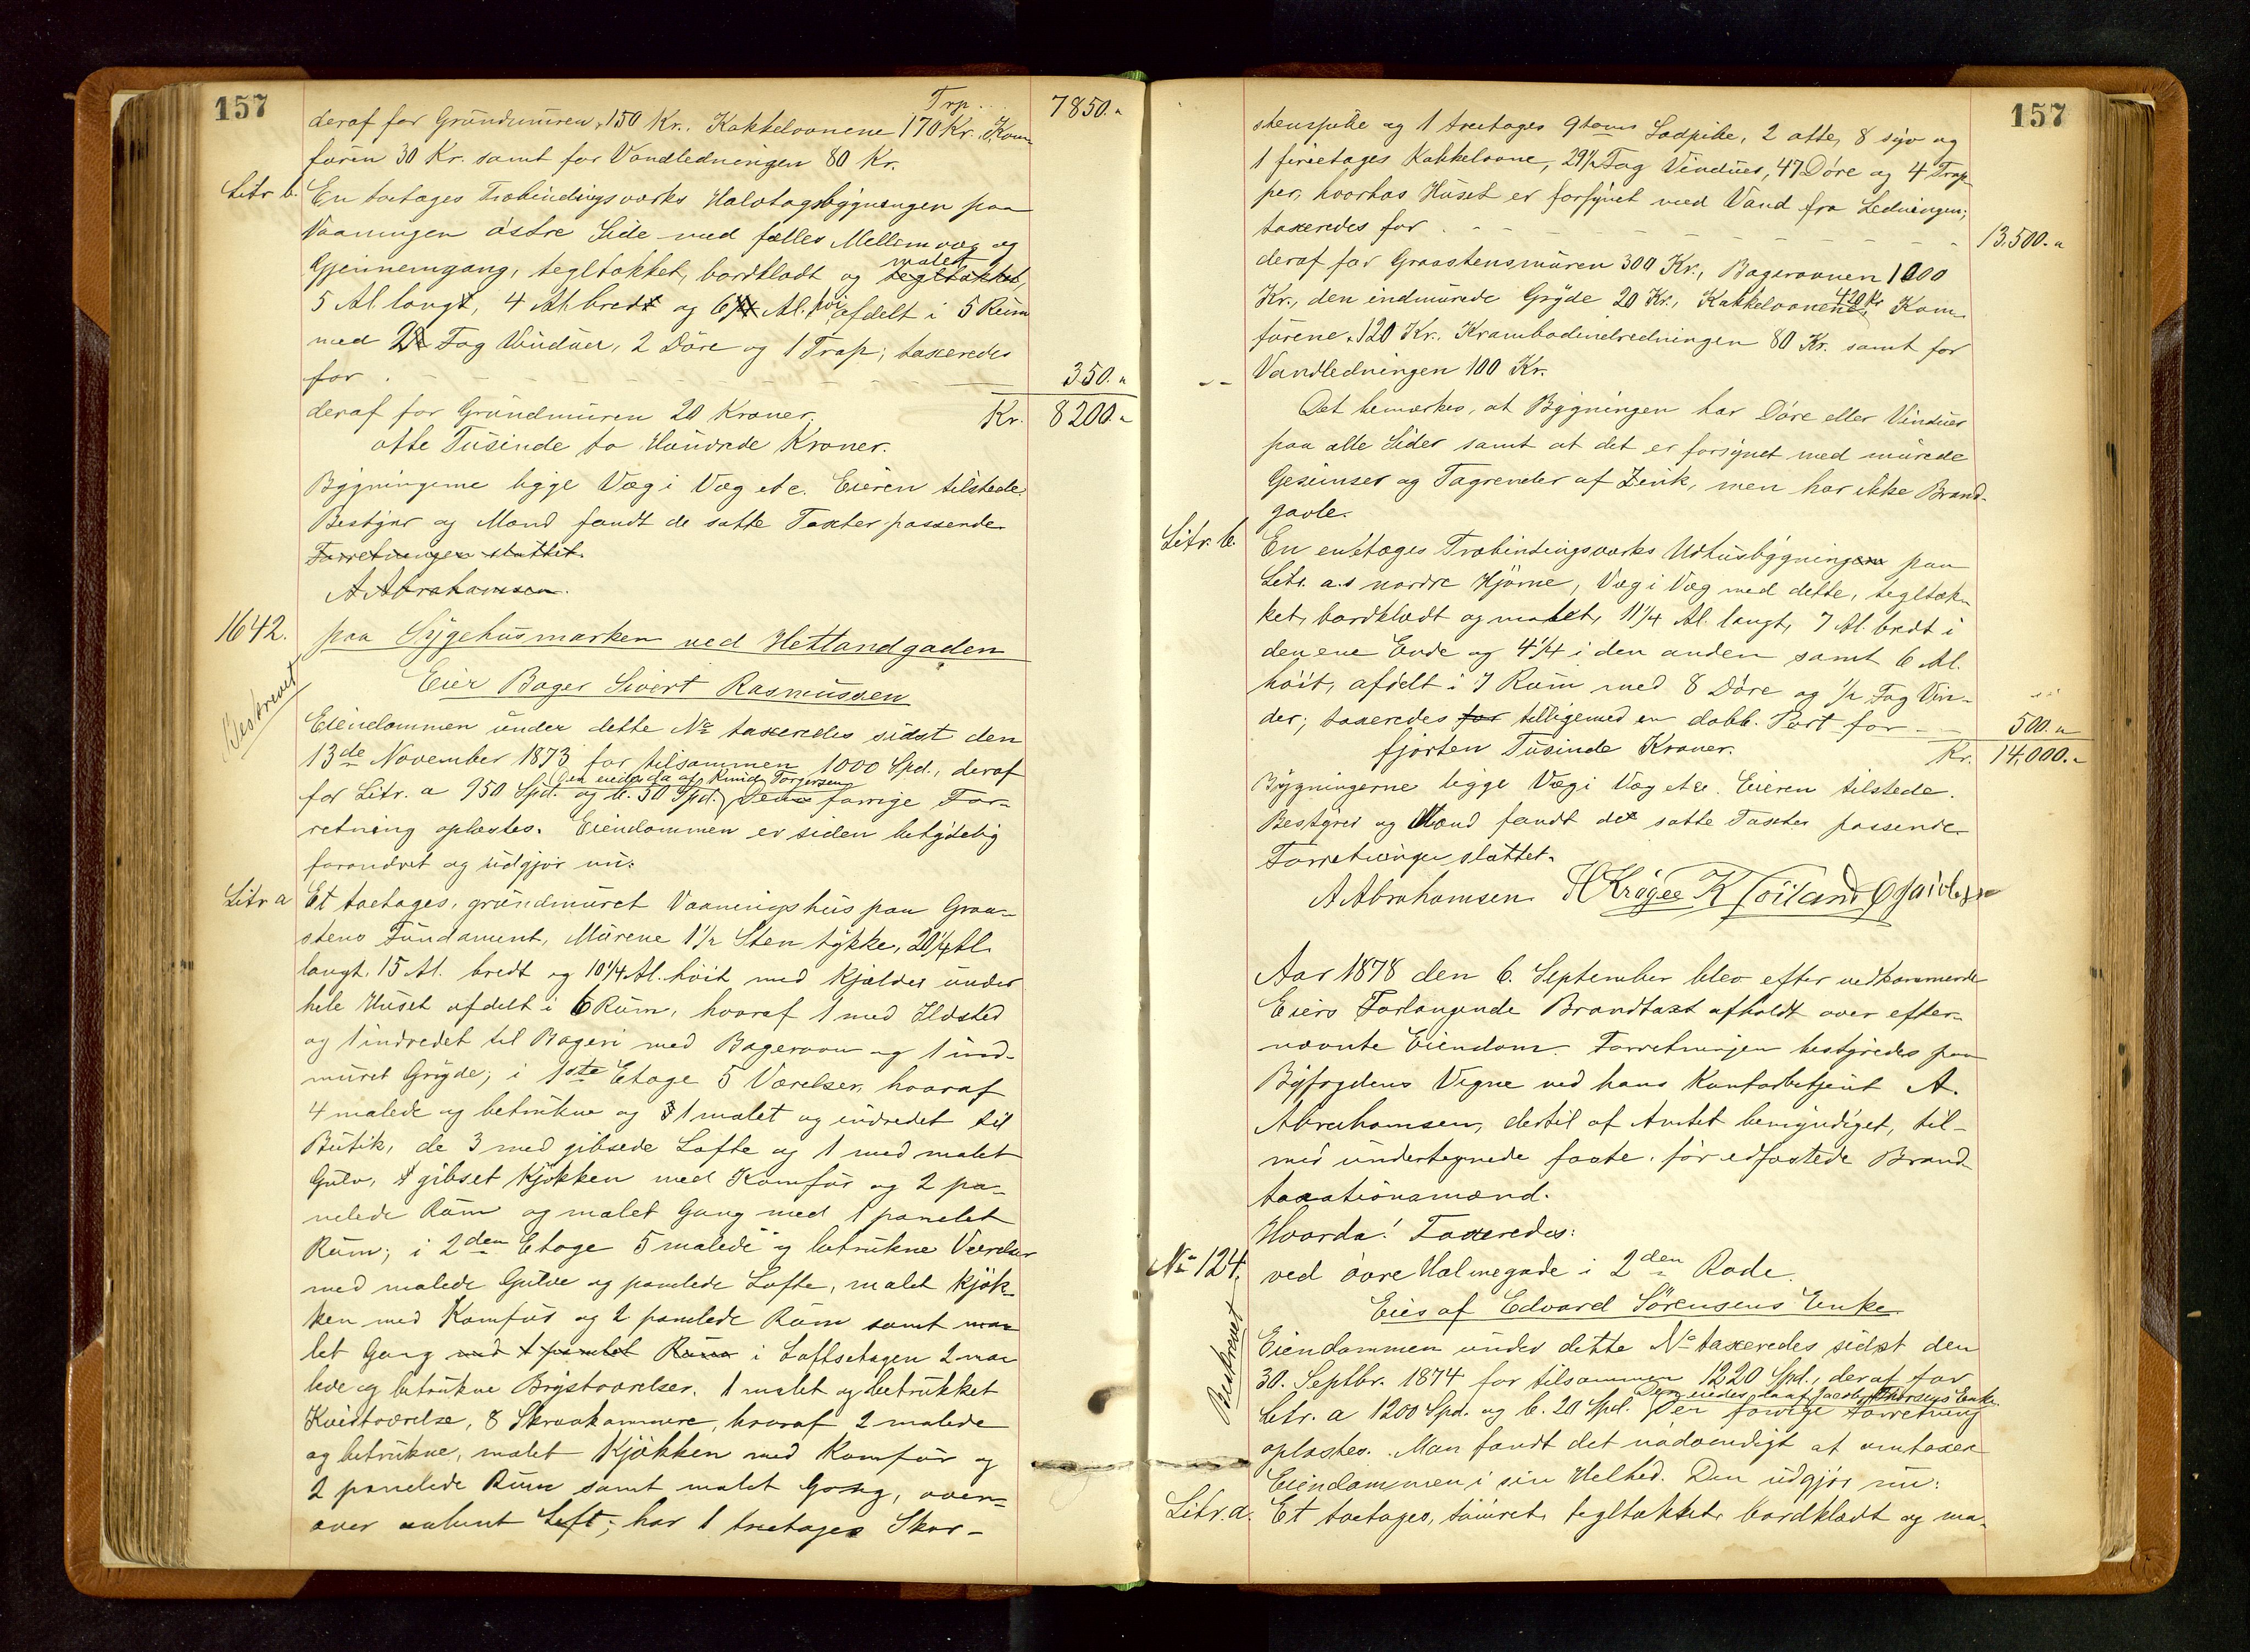 157
Trp. 7850.„
deraf for Grundmuren 150 Kr. Kakkelovnene 170 Kr. Kom-
furen 30 Kr. samt for Vandledningen 80 Kr.
Litr b. En toetages Træbindingsværks Halvtagsbygningen paa
Vaaningen østre Side med fælles Mellemvæg og
Gjennemgang, tegltækket, bordklædt og malet tegltækket,
5 Al. langt, 4 Al. bredt og 6 Al. høi afdelt i 5 Rum
med 2 Fag Vinduer, 2 Døre og 1 Trap; taxeredes
for 350.„
deraf for Grundmuren 20 Kroner. Kr. 8200.„
otte Tusinde to Hundrede Kroner.
Bygningerne ligge Væg i Væg etc. Eieren tilstede.
Bestyrer og Mænd fandt de satte Taxter passende.
Forretningen sluttet.
A Abrahamsen.
1642. paa Sygehusmarken ved Hetlandgaden
Beskrevet
Eier Bager Sivert Rasmussen
Eiendommen under dette No taxeredes sidst den
13de November 1873 for tilsammen 1000 Spd., deraf
Den eiedes da af Knud Torgersen
for Litr. a 950 Spd. og b. 50 Spd. Den forrige For-
retning oplæstes. Eiendommen er siden betydelig
forandret og udgjør nu:
Litr a Et toetages, grundmuret Vaaningshus paa Graa-
stens Fundament, Murene 1½ Sten tykke, 20¼ Al.
langt, 15 Al. bredt og 10¼ Al. høit med Kjælder under
hele Huset afdelt i 6 Rum, hvoraf 1 med Ildsted
og 1 indredet til Bageri med Bagerovn og 1 ind-
muret Gryde; i 1ste Etage 5 Værelser, hvoraf
4 malede og betrukne og 1 malet og indredet til
Butik, de 3 med gibsede Lofte og 1 med malet
Gulv, gibset Kjøkken med Komfur og 2 pa-
nelede Rum og malet Gang med 1 panelet
Rum; i 2den Etage 5 malede og betrukne Værelser
med malede Gulve og panelede Lofte, malet Kjøk-
ken med Komfur og 2 panelede Rum samt ma-
let Gang med 1 panelet Rum i Loftsetagen 2 ma-
lede og betrukne Brystværelser, 1 malet og betrukket
Kvistværelse, 8 Skraakammere, hvoraf 2 malede
og betrukne, malet Kjøkken med Komfur og
2 panelede Rum samt malet Gang, oven-
over aabent Loft; har 1 treetages Skor-
157
stenspibe og 1 treetages 9toms Lodpibe, 2 otte, 8 syv og
1 fireetages Kakkelovne, 29½ Fag Vinduer, 47 Døre og 4 Trap-
per, hvorhos Huset er forsynet med Vand fra Ledningen;
taxeredes for 13,500.„
deraf for Graastensmuren 300 Kr., Bagerovnen 1000
Kr., den indmurede Gryde 20 Kr., Kakkelovnene 420 Kr. Kom-
furene 120 Kr., Krambodindredningen 80 Kr. samt for
Vandledningen 100 Kr.
Det bemærkes, at Bygningen har Døre eller Vinduer
paa alle Sider samt at det er forsynet med murede
Gesimser og Tagrender af Zink, men har ikke Brand-
gavle.
Litr. b. En enetages Træbindingsværks Udhusbygningen paa
Litr. a.s nordre Hjørne, Væg i Væg med dette, tegltæk-
ket, bordklædt og malet, 11¼ Al. langt, 7 Al. bredt i
den ene Ende og 4¼ i den anden samt 6 Al.
høit, afdelt i 7 Rum med 8 Døre og ½ Fag Vin-
der; taxeredes for tilligemed en dobb. Port for 500.„
fjorten Tusinde Kroner. Kr. 14,000.„
Bygningerne ligge Væg i Væg etc. Eieren tilstede.
Bestyrer og Mænd fandt de satte Taxter passende.
Forretningen sluttet.
A Abrahamsen.
Aar 1878 den 6. September blev efter vedkommende
Eiers Forlangende Brandtaxt afholdt over efter-
nævnte Eiendom. Forretningen bestyredes paa
Byfogdens Vegne ved hans Kontorbetjent A.
Abrahamsen, dertil af Amtet bemyndiget, til-
med undertegnede faste, før edfæstede Brand-
taxationsmænd.
Hvorda! Taxeredes:
No 124. ved øvre Holmegade i 2den Rode.
Eies af Edvard Sørensens Enke
Beskrevet
Eiendommen under dette No taxeredes sidst den
30. Septbr. 1874 for tilsammen 1220 Spd., deraf for
Den eiedes da af Jacob Enke.
Litr. a 1200 Spd. og b. 20 Spd. Den forrige Forretning
oplæstes. Man fandt det nødvendigt at omtaxere
Eiendommen i sin Helhed. Den udgjør nu:
Litr. a. Et toetages, tømret, tegltækket, bordklædt og ma-